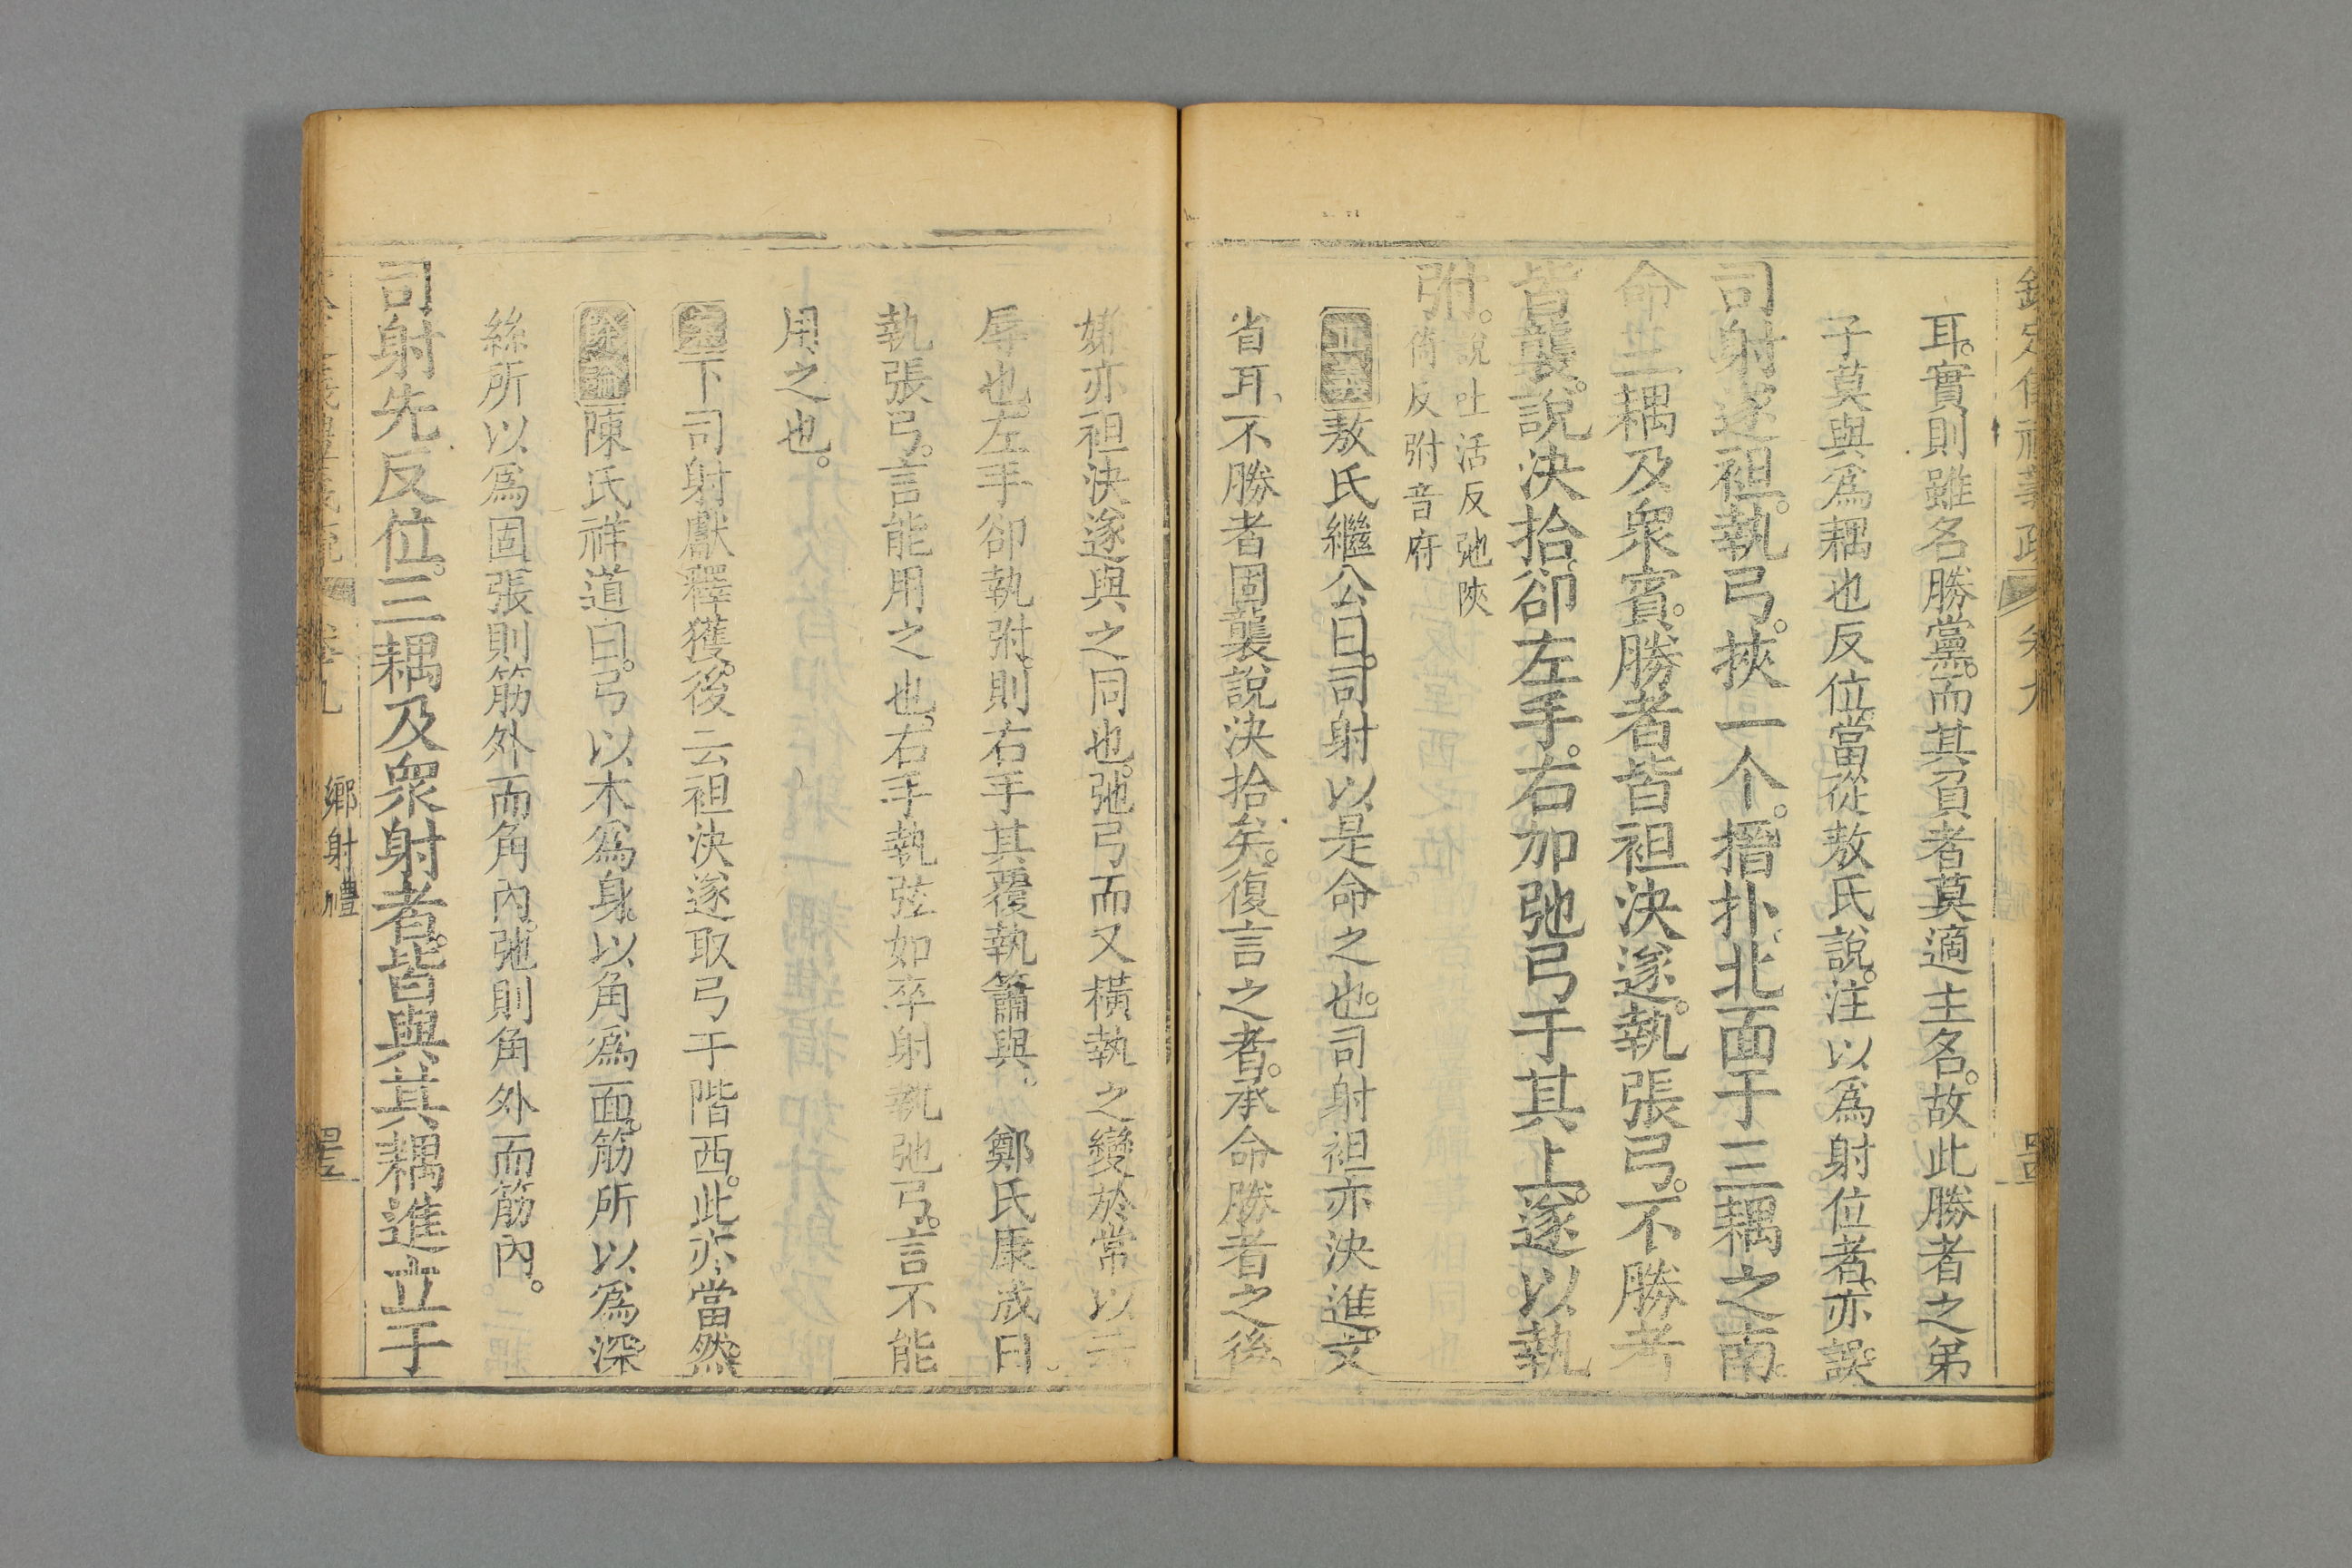 耳。實則雖名勝黨。而其負者莫適主名。故此勝者之弟
子莫與爲耦也反位。當從敖氏說。注以爲射位者、亦誤。
司射遂袒。執弓。挾一个。搢扑、北面于三耦之南。
命三耦及衆賓。勝者皆袒決遂。執張弓。不勝者
皆襲。說決拾。卻左手。右加弛弓于其上。遂以執
弣。
說吐活反弛陝
倚反弣音府
正義敖氏繼公曰。司射以是命之也。司射袒亦決進。文
省耳、不勝者固襲說決拾矣。復言之者。承命勝者之後、
嫌亦袒決遂與之同也。弛弓而又橫執之變於常以示
辱也。左手卻執弣。則右手其覆執簫與。 鄭氏康成曰。
執張弓。言能用之也。右手執弦如卒射執弛弓。言不能
用之也。
下司射獻釋獲。後云袒決遂取弓于階西。此亦當然。
餘論陳氏祥道曰。弓以木爲身。以角爲面。筋所以爲深。
絲所以爲固張則筋外而角內。弛則角外而筋內。
司射先反位。三耦及衆射者。皆與其耦進立于
卷九
鄉射禮